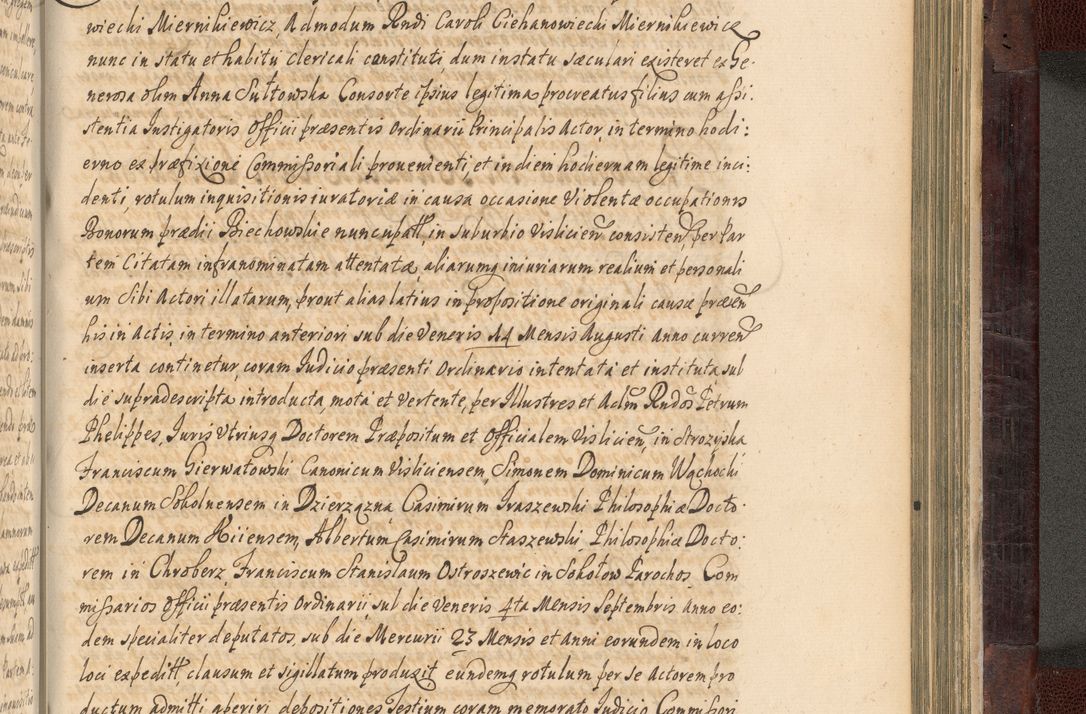 wiecki Miernikiewicz, Admodum Rndi Caroli Ciehanowiecki Miernikiewicz
nunc in statu et habitu Clericali constituti, dum in statu sæculari existeret ex Ge-
nerosa olim Anna Sułtowska Consorte ipsius legitima procreatus filius cum assi:
stentia Instigatoris Officii præsentis Ordinarii Principalis Actor, in termino hodi:
erno ex præfixione Commissoriali prouenienti, et in diem hodiernam legitime inci:
denti, rotulum inquisitionis iuratoriæ in causa occasione Violentæ occupationis
Bonorum prædii Biechowskie nuncupatt, in suburbio Vislicien̄ consisten̄, per Par
tem Citatam infranominatam attentatæ, aliarumq iniuriarum realium et personali
um Sibi Actori illatarum, prout alias latius in propositione originali causæ præsen̄
his in Actis, in termino anteriori sub die Veneris 14 Mensis Augusti anno curren̄
inserta continetur, coram Iudicio præsenti Ordinario intentata et instituta sub
die supradescripta introducta, mota et vertente, per Illustres et Adm Rndos Petrum
Phelippes, Juris Vtriusq Doctorem Præpositum et Officialem Vislicien̄, in Strozyska
Franciscum Gierwatowski Canonicum Visliciensem, Simonem Dominicum Wąchocki
Decanum Sokolnensem in Dzierzązna Casimirum Iraszewski Philosophiæ Docto-
rem Decanum Kiiensem, Albertum Casimirum Staszewski, Philosophiæ Docto:
rem in Chroberz, Franciscum Stanislaum Ostroszewic in Sokołow Parochos, Com
missarios Officii præsentis Ordinarii, sub die Veneris 4ta Mensis Septembris anno eo:
dem specialiter deputatos, sub die Mercurii 23 Mensis et anni eorundem in loco
loci expeditt, clausum et sigillatum produxit eundemq rotulum per se Actorem pro
ductum admitti aperiri, depositiones Testium coram memorato Iudicio Commissori